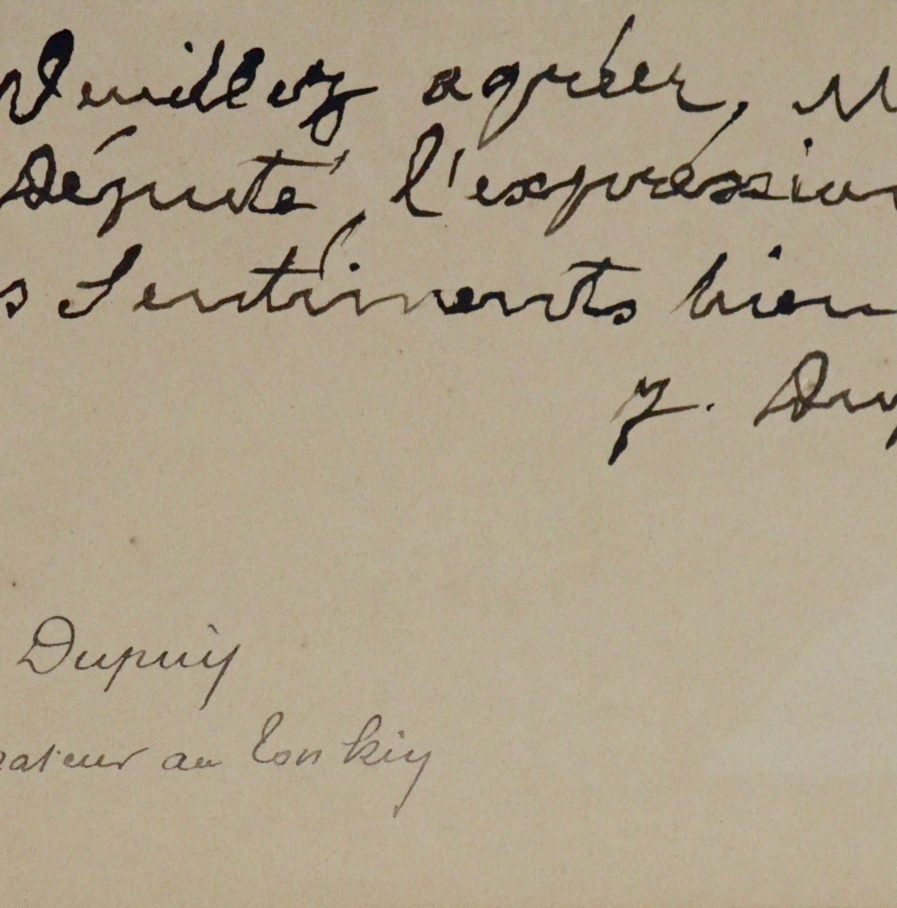 Veuillez agréer, M
Député, l'expréssion
s Sentiments bien
J. Dup
Dupuy
rateur au Tonkin